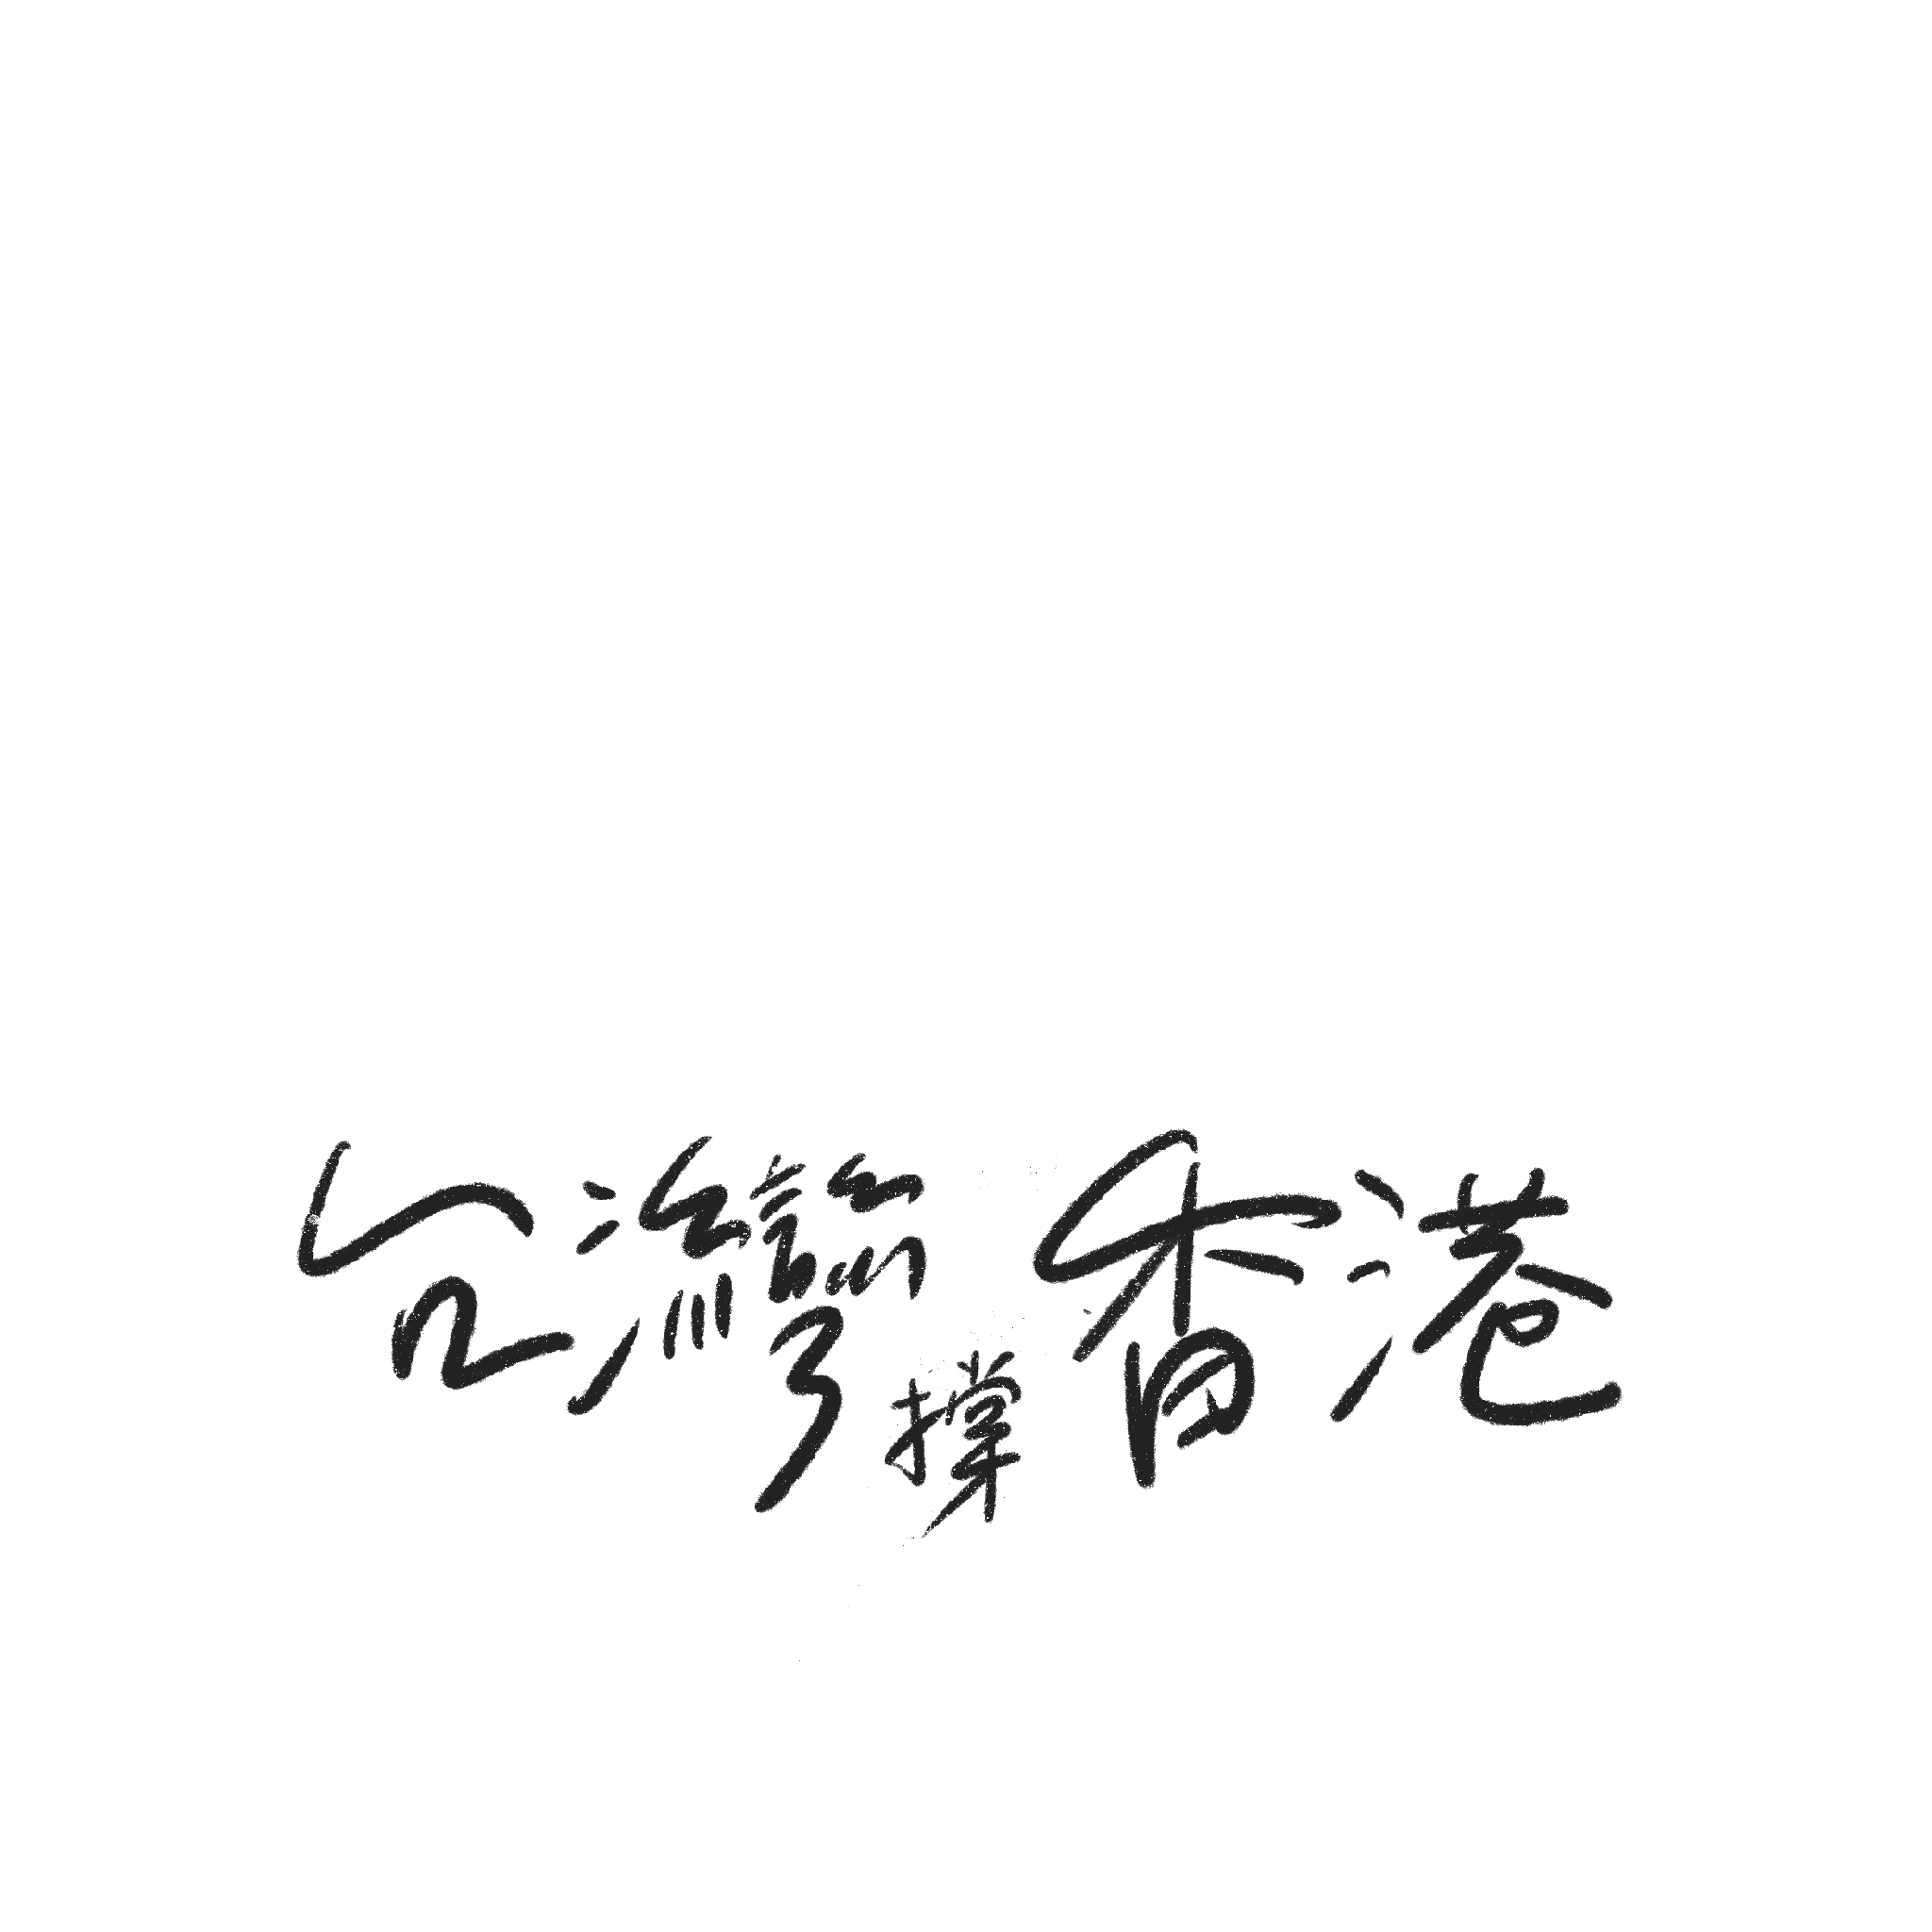 台灣撐香港